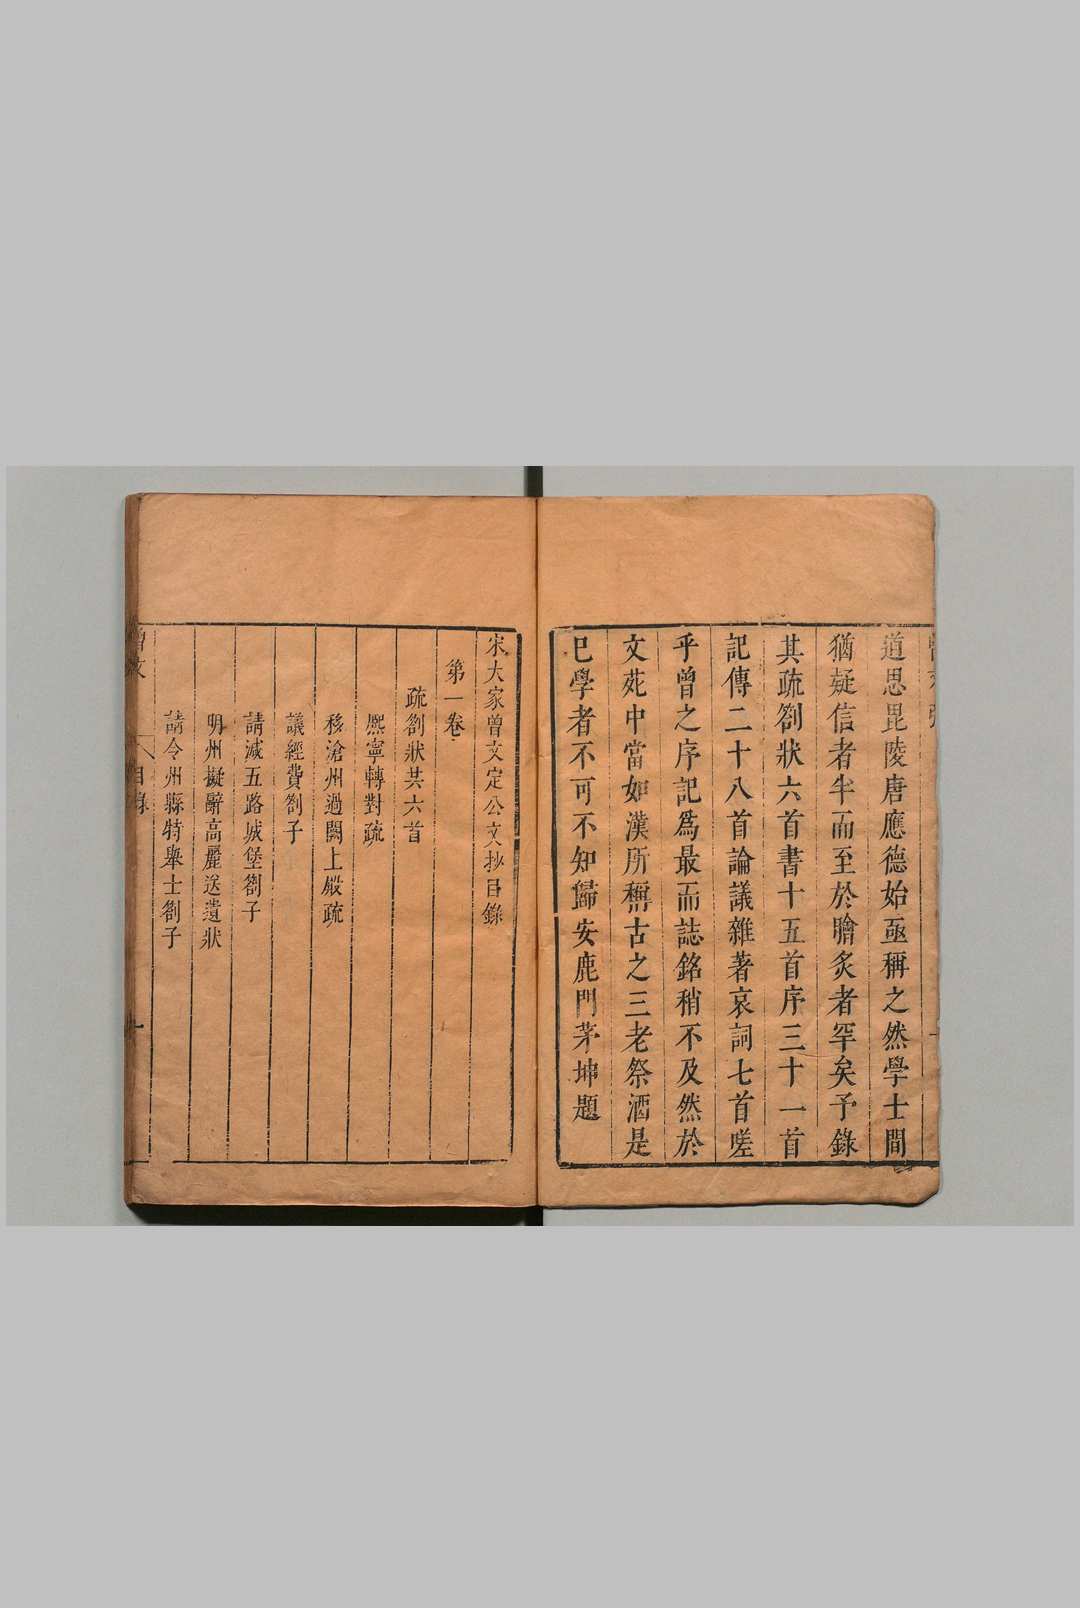 道思毘陵唐應德始亟稱之然學士間
猶疑信者半而至於膾炙者罕矣予錄
其疏劄狀六首書十五首序三十一首
記傳二十八首論議雜著哀詞七首嗟
乎曾之序記爲最而誌銘稍不及然於
文苑中當如漢所稱古之三老祭酒是
已學者不可不知歸安鹿門茅坤題
宋大家曾文定公文抄目錄
第一卷
疏劄狀共六首
熈寧轉對疏
移滄州過闕上殿疏
議經費劄子
請減五路城堡劄子
明州擬辭高麗送遺狀
請令州縣特舉士劄子
目錄